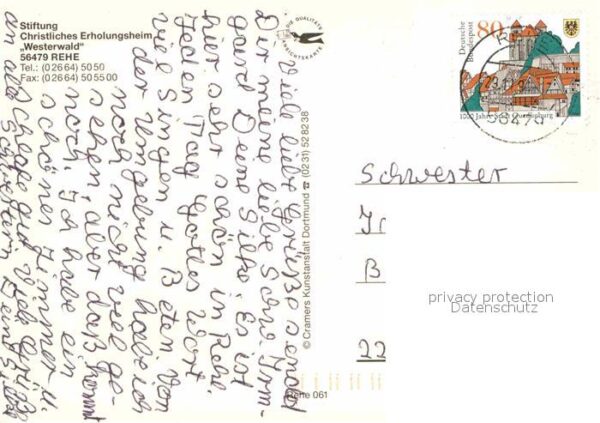 Stiftung
Christliches Erholungsheim
„Westerwald"
56479 REHE
Tel.: (0 26 64) 50 50
Fax: (0 26 64) 50 55 00
DIE QUALITÄTS
ANSICHTSKARTE
Viele liebe Grüße sendet
Dir meine liebe Schw. Irm-
gard Deine Silke. Es ist
hier sehr schön in Rehe.
Jeden Tag Gottes Wort
viel Singen u. Beten. Von
der Umgebung habe ich
noch nicht viel ge-
sehen, aber daß kommt
noch. Ich habe ein
schönes Zimmer u.
schlafe gut. Viele Grüße
an alle Schwestern Deine Silke
© Cramers Kunstanstalt Dortmund ☎ (0231) 528238
Rehe 061
Deutsche
Bundespost
80
1000 Jahre Stadt Quedlinburg
56479
Schwester
Ir
B
22
privacy protection
Datenschutz